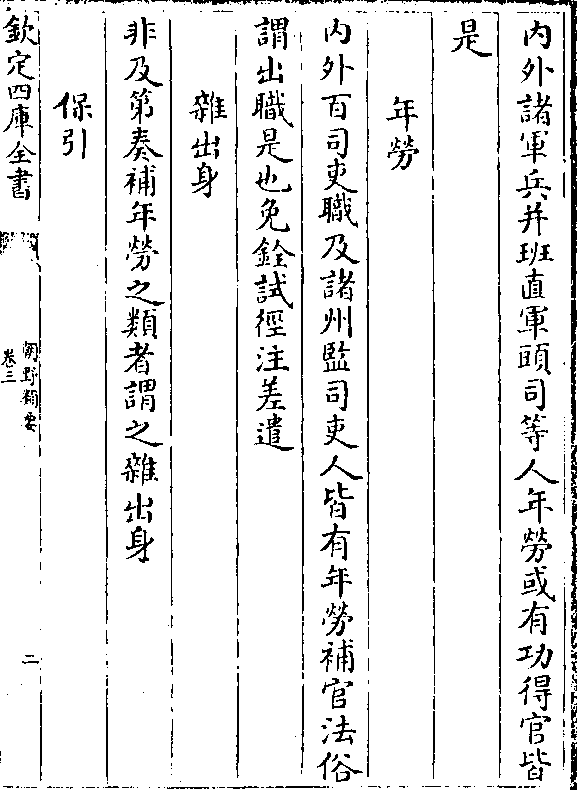 内外諸軍兵并班直軍頭司等人年勞或有功得官皆
是
年勞
内外百司吏職及諸州監司吏人皆有年勞補官法俗
謂出職是也免銓試徑注差遣
雜出身
非及第奏補年勞之類者謂之雜出身
保引
欽定四庫全書
朝野類要
卷三
二